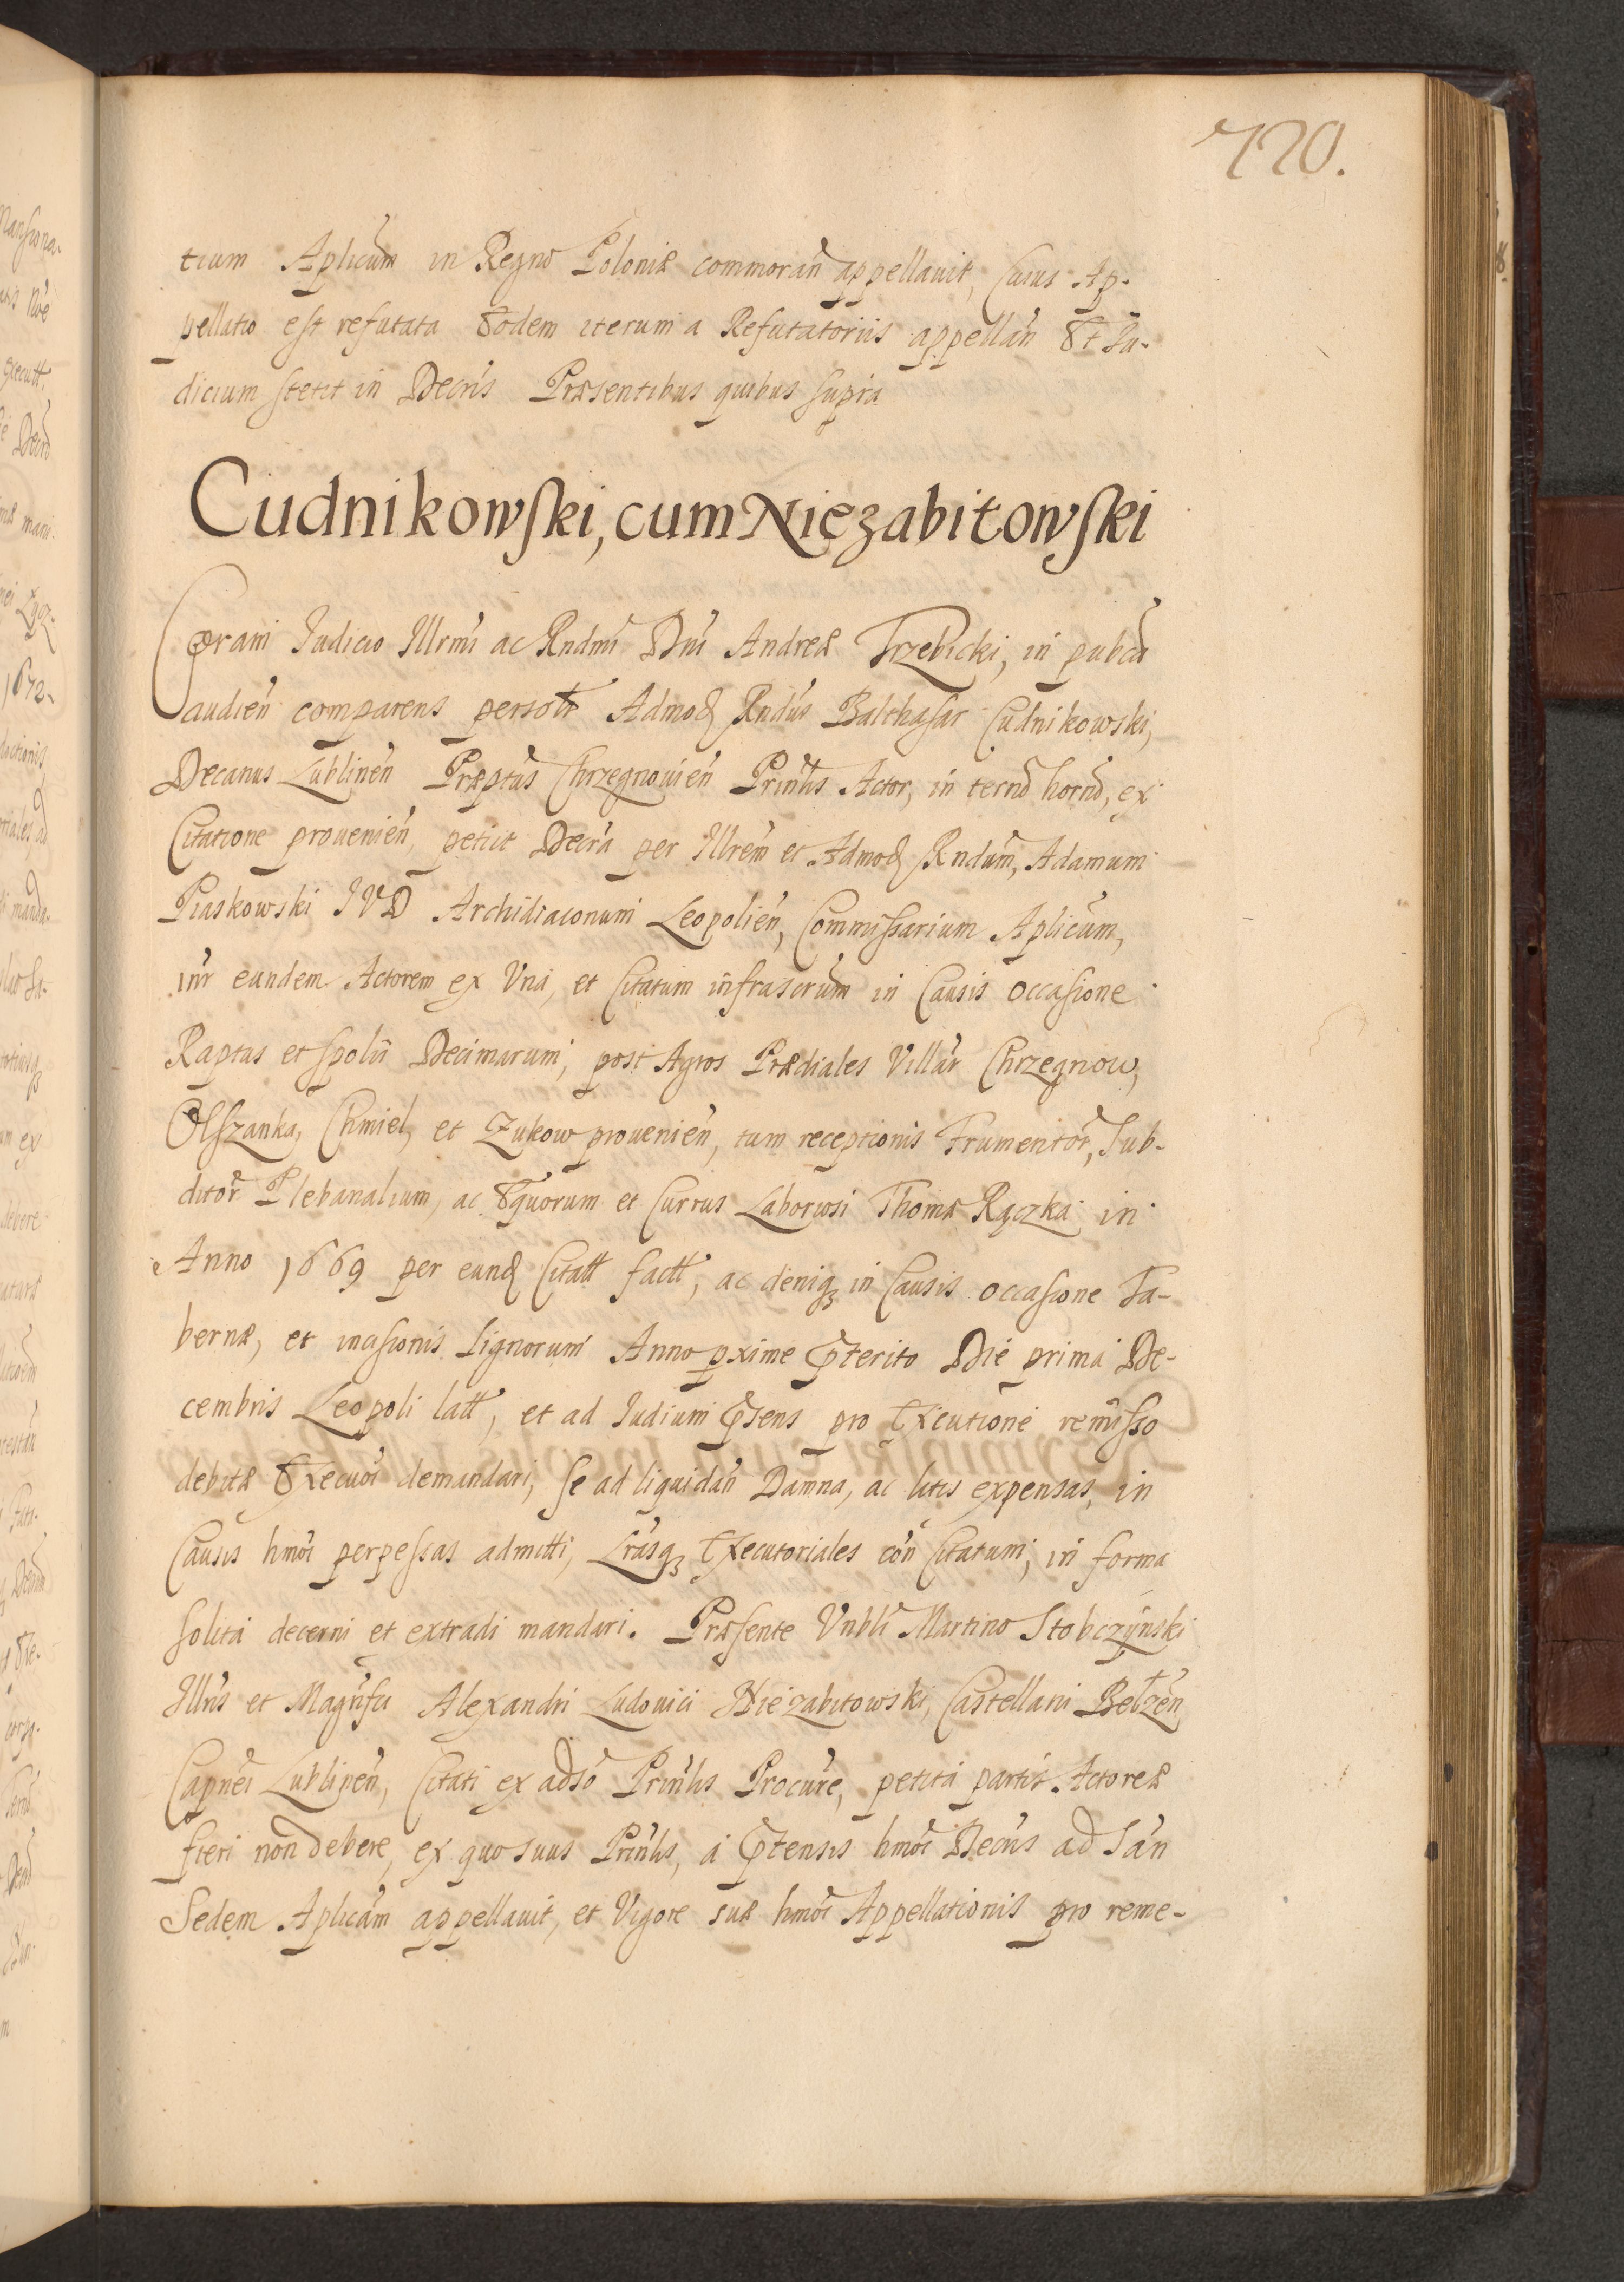 720.
tium Aplicum in Regno Poloniæ commoran̄ appellauit, Cuius Ap-
pellatio est refutata Eodem iterum a Refutatoriis appellan̄ Et Iu-
dicium stetit in Decris Præsentibus quibus supra
Cudnikowski, cum Niezabitowski
Coram Iudicio Illrmi ac Rndmi Dni Andreæ Trzebicki, in pubca
audien̄ comparens persolr Admod Rndus Balthasar Cudnikowski,
Decanus Lublinen̄ Præptus Chrzegnouien̄ Prinlis Actor, in termo horno, ex
Citatione prouenien̄, petiit Decra per Illrem et Admod Rndum, Adamum
Piaskowski IVD Archidiaconum Leopolien̄, Commissarium Aplicum,
intr eundem Actorem ex Vna, et Citatum infrascrum in Causis occasione
Raptus et spolii Decimarum, post Agros Prædiales Villar Chrzegnow,
Olszanka, Chmiel, et Zukow prouenien̄, tum receptionis Frumentor, Sub-
ditor Plebanalium, ac Equorum et Currus Laboriosi Thomæ Rączka in
Anno 1669 per eund Citatt factt, ac deniqꝫ in Causis occasione Ta-
bernæ, et incisionis Lignorum Anno pxime Pterito Die prima De-
cembris Leopoli latt, et ad Iudium Psens pro Executione remisso
debitæ Execuoi demandari, se ad liquidan̄ Damna, ac litis expensas, in
Causis hmoi perpessas admitti, Lrasqꝫ Executoriales con̄ Citatum, in forma
solita decerni et extradi mandari. Præsente Vnbli Martino Stobczynski
Illris et Magnfci Alexandri Ludouici Niezabitowski, Castellani Belzen̄
Capnei Lublinen̄, Citati ex adso Prinlis Procure, petita partis Actoreæ
fieri non debere, ex quo suus Prinlis, a Ptensis hmoi Decris ad San
Sedem Aplicam appellauit, et Vigore suæ hmoi Appellationis pro reme-